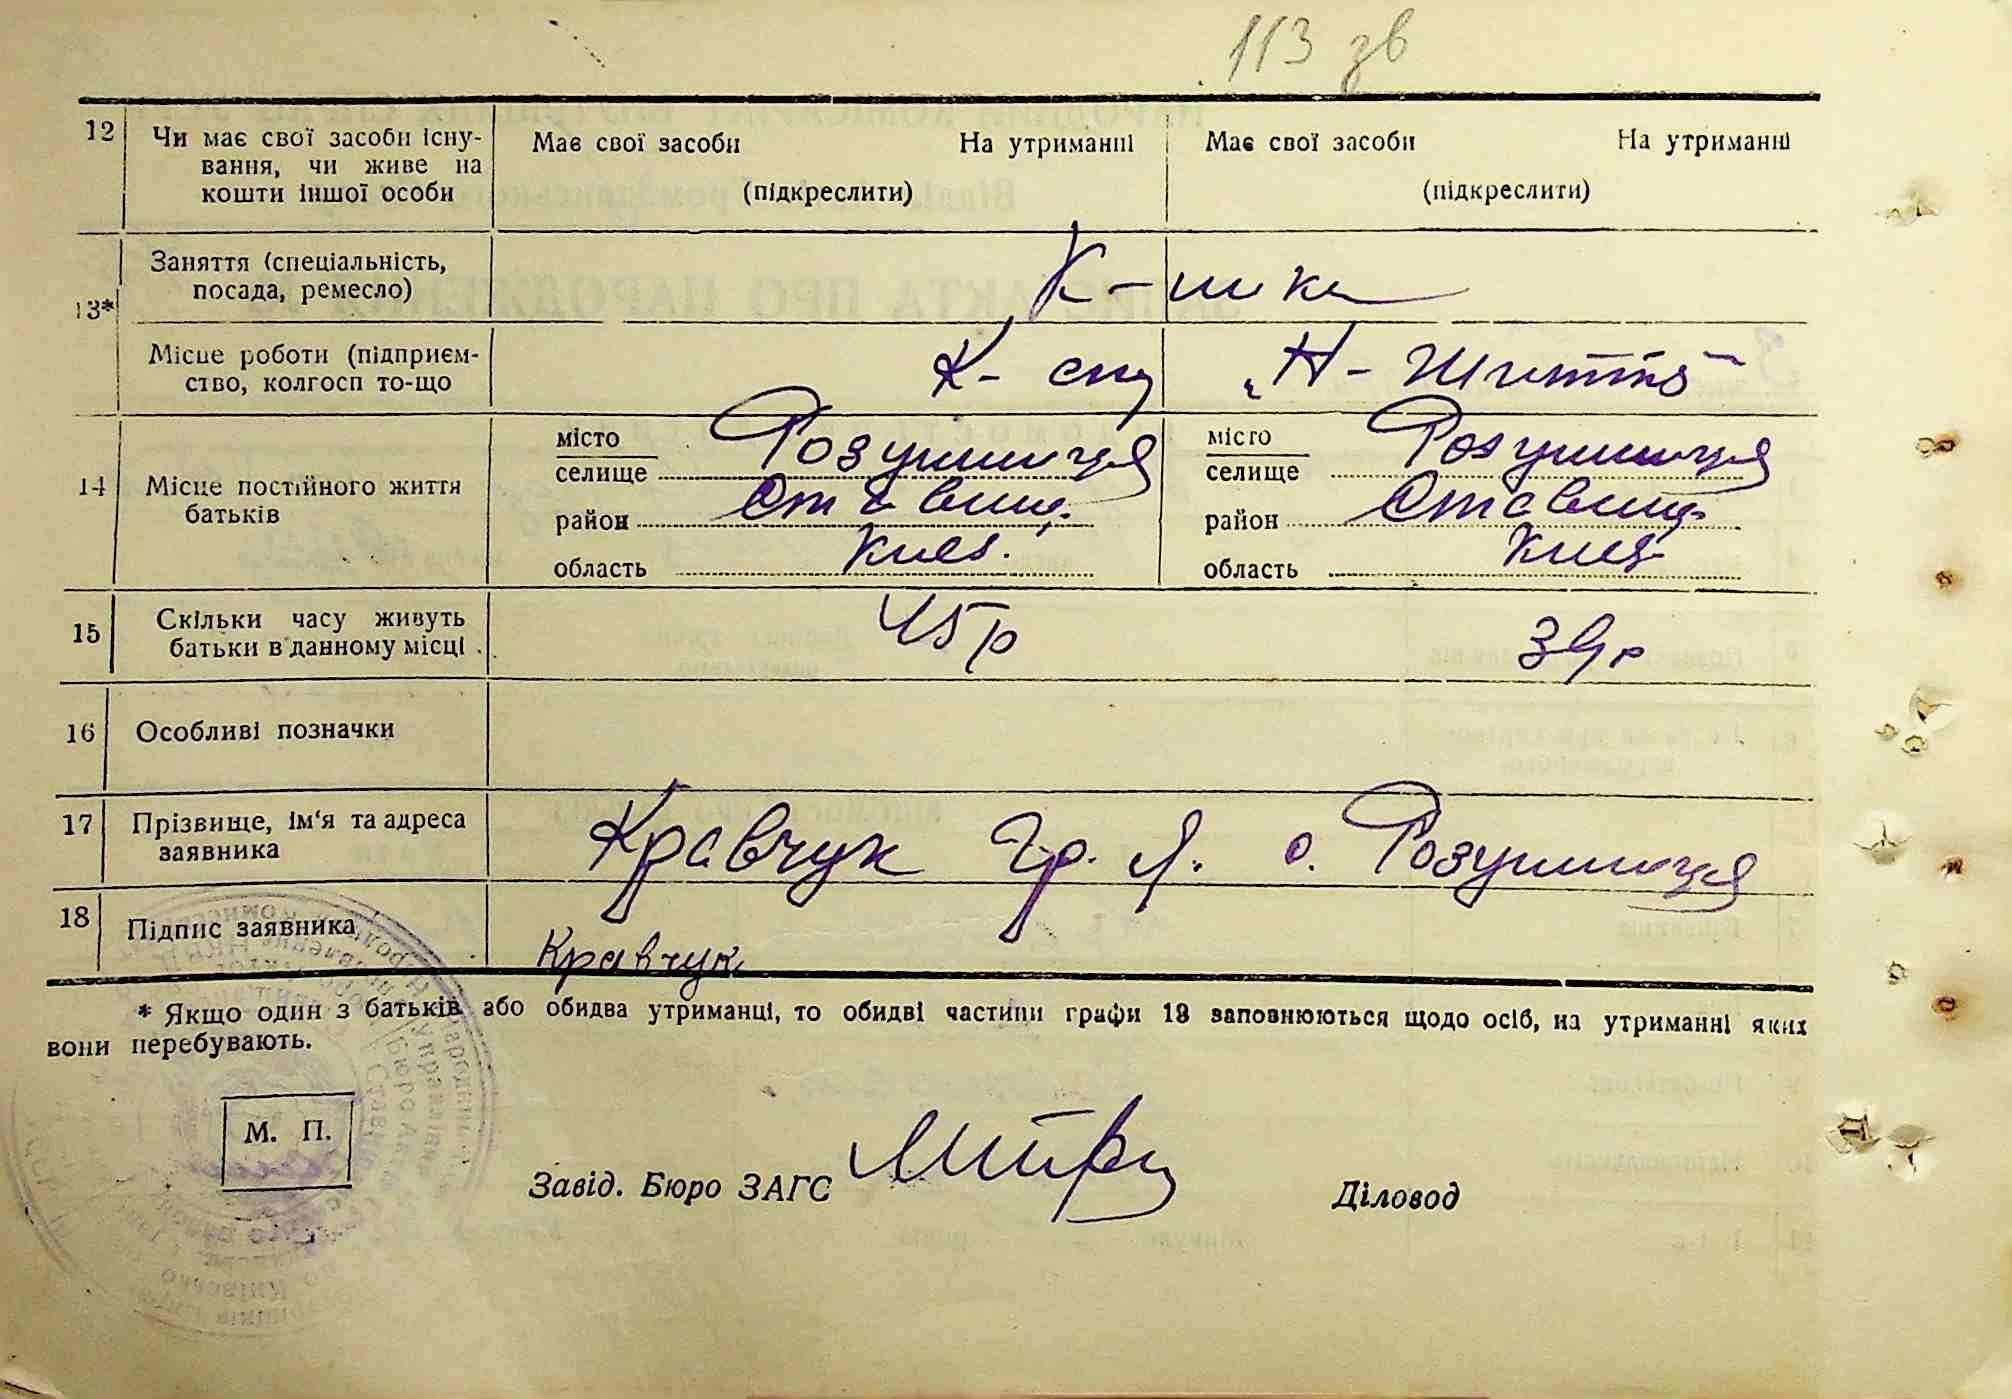 113 зв
12 Чи має свої засоби існу-
вання, чи живе на
кошти іншої особи
Має свої засоби На утриманні
(підкреслити)
Має свої засоби На утриманні
(підкреслити)
13* Заняття (спеціальність,
посада, ремесло)
К-ники
Місце роботи (підприєм-
ство, колгосп то-що
К-сп „Н-Життя"
14 Місце постійного життя
батьків
місто
селище Розумниця
район Ставищ.
область Київ.
місто
селище Розумниця
район Ставищ
область Київ
15 Скільки часу живуть
батьки в данному місці
45 р
39 р
16 Особливі позначки
17 Прізвище, ім'я та адреса
заявника
Кравчук Гр. Я. с. Розумниця
18 Підпис заявника
Кравчук
* Якщо один з батьків або обидва утриманці, то обидві частини графи 13 заповнюються щодо осіб, на утриманні яких
вони перебувають.
М. П.
Завід. Бюро ЗАГС
Діловод